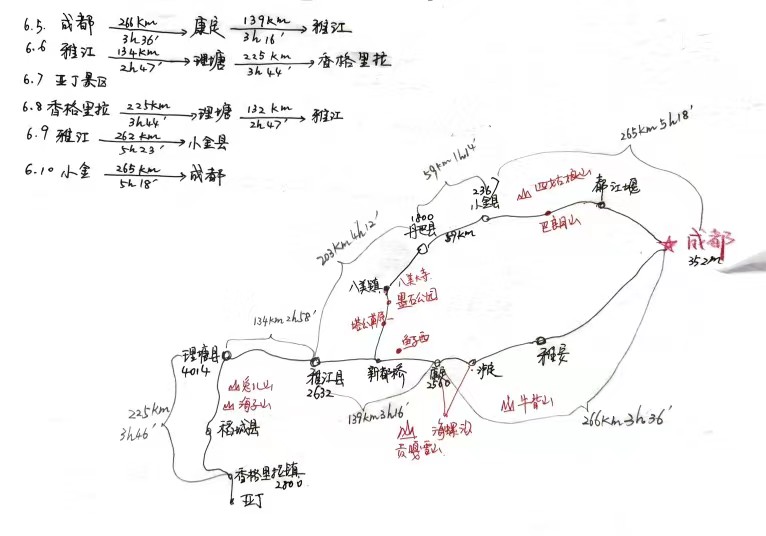 6.5. 成都 266km 3h36′ 康定 139km 3h16′ 雅江
6.6 雅江 134km 2h47′ 理塘 225km 3h44′ 香格里拉
6.7 亚丁景区
6.8 香格里拉 225km 3h44′ 理塘 132km 2h47′ 雅江
6.9 雅江 262km 5h23′ 小金县
6.10 小金 265km 5h18′ 成都
265km 5h18′
59km 1h14′
四姑娘山
都江堰
236
小金县
巴朗山
1800
丹巴县
59km
成都
352m
203km 4h12′
八美镇
八美大寺
墨石公园
塔公草原
鱼子西
134km 2h58′
理塘县
4014
雅江县
2632
新都桥
康定
2560
泸定
雅安
兔儿山
海子山
139km 3h16′
牛背山
266km 3h36′
225km
3h46′
稻城县
贡嘎雪山
海螺沟
香格里拉镇
2800
亚丁